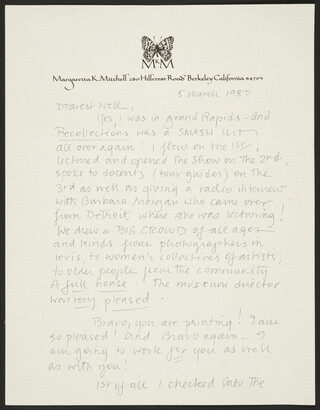 MKM
Margaretta K. Mitchell 280 Hillcrest Road Berkeley California 94705
5 March 1980
Dearest Nell,
Yes, I was in Grand Rapids - and
Recollections was a SMASH HIT
all over again! I flew on the 1st,
lectured and opened the show on the 2nd,
spoke to docents (tour guides) on the
3rd as well as giving a radio interview
with Barbara Morgan who came over
from Detroit where she was lecturing!
We drew a BIG CROWD of all ages
and kinds from photographers in
levis, to women's collectives of artists,
to older people from the community
A full house. The museum director
was very pleased.
Bravo, you are printing! I am
so pleased! And Bravo again - I
am going to work for you as well
as with you!
1st of all I checked into the